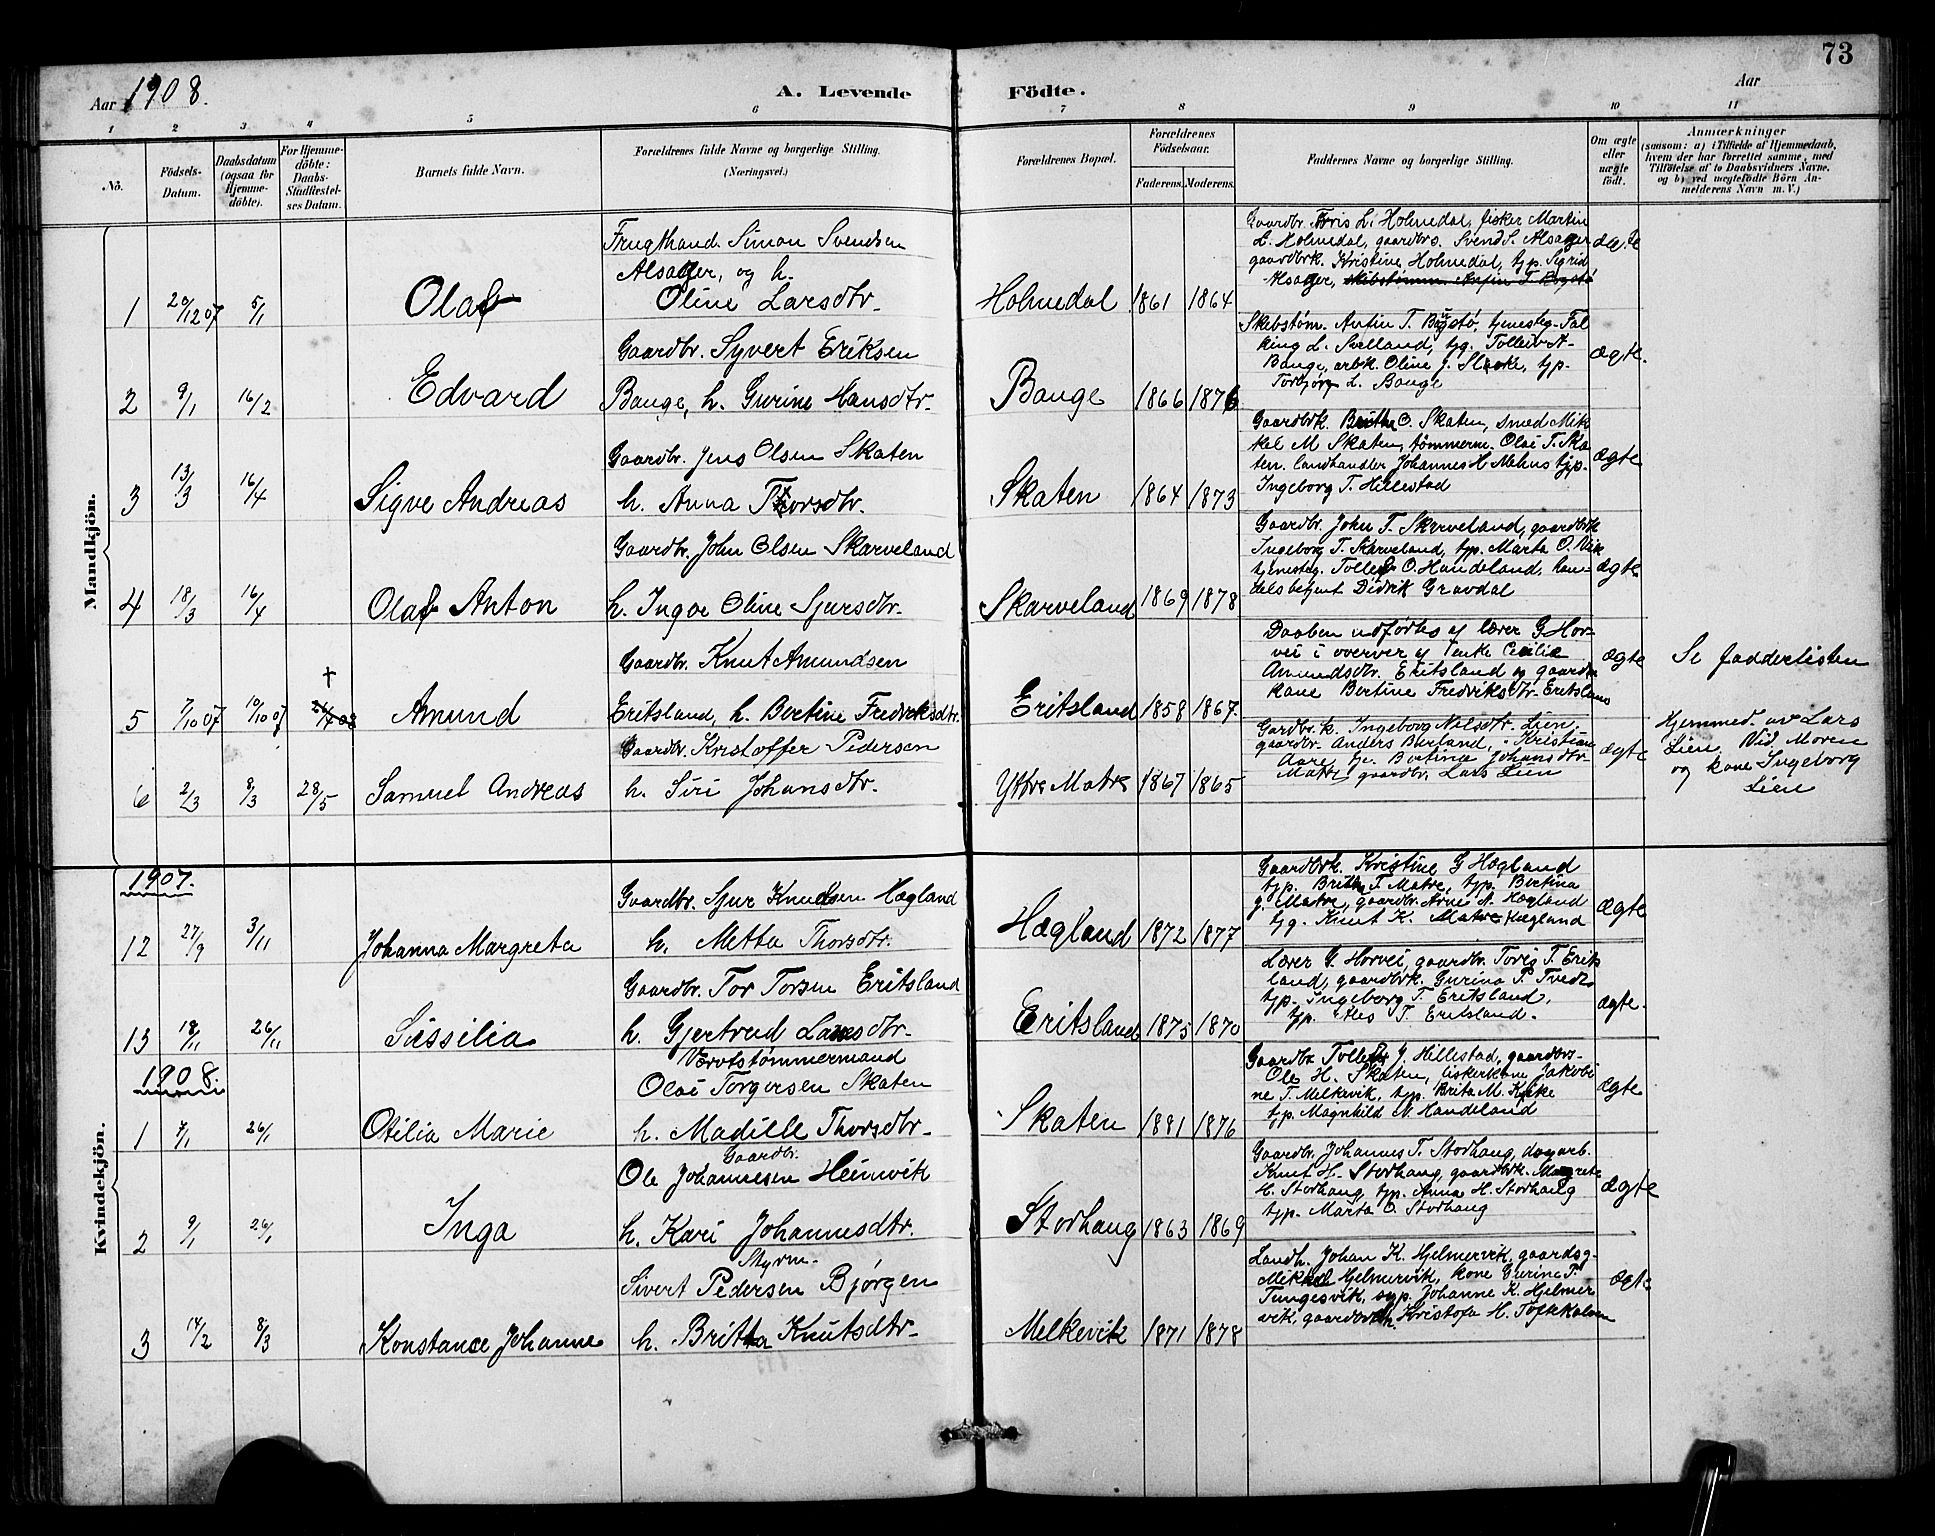 73
Aar 1908. A. Levende Födte. Aar
1 2 3 4 5 6 7 8 9 10 11
No.
Födsels-Datum.
Daabsdatum (ogsaa for Hjemme-döbte).
For Hjemme-döbte: Daabs-Stadfæstel-ses Datum.
Barnets fulde Navn.
Forældrenes fulde Navne og borgerlige Stilling.
(Næringsvei.)
Forældrenes Bopæl.
Forældrenes Födselsaar.
Faderens. Moderens.
Faddernes Navne og borgerlige Stilling.
Om ægte eller uægte födt.
Anmærkninger
(saasom: a) i Tilfælde af Hjemmedaab,
hvem der har forrettet samme, med
Tilföielse af to Daabsvidners Navne,
og b) ved uægtefödte Börn An-
melderens Navn m. V.)
Mandkjön.
1 20/12 07 5/1 Olaf
Frugthand. Simon Svendsen
Alsager, og h.
Oline Larsdtr.
Holmedal 1861 1864
Gaardbr. Toris L. Holmedal, fisker Martin
L. Holmedal, gaardbrs. Svend S. Alsager
gaardbrk. Kristine Holmedal, tjp. Sigrid
Alsager,
ægte
2 9/1 16/2 Edvard
Gaardbr. Syvert Eriksen
Bauge, h. Gurine Hansdtr.
Bauge 1866 1876
Skibstøm. Antin T. Bogstø, tjenesteg. Fal
king L. Svelland, tjg. Tolleiv A.
Bauge, arbk. Oline J. Slaake, tjp.
Torbjørg L. Bauge
ægte.
3 13/3 16/4 Sigve Andreas
Gaardbr. Jens Olsen Skaten
h. Anna Thorsdtr.
Skaten 1864 1873
Gaardbrk. Britha O. Skaten, smed Mik
kel M Skaten, tømmerm. Olai T. Ska
ten. landhandler Johannes H Mehus tjp.
Ingeborg T. Hillestad
ægte
4 18/3 16/4 Olaf Anton
Gaardbr. John Olsen Skarveland
h. Ingve Oline Sjursdtr.
Skarveland 1869 1878
Gaardbr. John T. Skarveland, gaardbrk
Ingeborg T. Skarveland, tjp. Marta O. Vik
tjenesteg. Tollef O. Handeland, han-
delsbetjent Didrik Gravdal
ægte
5 7/10 07 10/10 07 † Amund
Gaardbr. Knut Amundsen
Eritsland, h. Bertine Fredriksdtr.
Eritsland 1858 1867.
Daaben udførtes af lærer G Hor-
vei i overvær af Enke Cecilie
Amundsdtr. Eritsland og gaardm
kone Bertine Fredriksdtr. Eritsland
ægte
Se fadderlisten
6 2/3 8/3 28/5 Samuel Andreas
Gaardbr. Kristoffer Pedersen
h. Siri Johansdtr.
Ytre Matre 1867 1865
Gardbr.k. Ingeborg Nelsdtr. Lien.
gaardbr. Anders Børland, Kristian
Aare, tp. Bertina Johansdtr.
Matre gaardbr. Lars Lien
ægte
Hjemmed. av Lars
Lien. Vid. Moren
og kone Ingeborg
Lien
Kvindekjön.
1907.
12 27/9 3/11 Johanna Margreta
Gaardbr. Sjur Knudsen Hægland
h. Metta Thorsdtr.
Hægland 1872 1877
Gaardbrk. Kristine G Hægland
tjp. Britha T. Matre, tjp. Bertina
J. Matre, gaardbr. Arne A. Hægland
tjg. Knut K. Matre Hægland
ægte
13 18/11 26/11 Sissilia
Gaardbr. Tor Torsen Eritsland
h. Gjertrud Larsdtr.
Eritsland 1875 1870
Lærer G. Horvei, gaardbr. Toris T. Erits
land, gaardbrk. Gurina P. Tvedt
tjp. Ingeborg T. Eritsland,
tjp. T. Eritsland.
ægte.
1908.
1 7/1 26/1 Otilia Marie
Værvtstømmermand
Olai Torgersen Skaten
h. Madille Thorsdtr.
Skaten 1881 1876
Gaardbr. Tollef J. Hillestad, gaardbrs.
Ole H. Skaten, fiskerkone Jakobi
ne T. Melkevik, tjp. Brita M. Kykke
tjp. Magnhild N Handeland
ægte
2 9/1 26/1 Inga
Gaardbr.
Ole Johannesen Heimvik
h. Kari Johannesdtr.
Storhaug 1863 1869
Gaardbr. Johannes T. Storhaug, dagarb.
Knut H. Storhaug, gaardbrk. Magrete
H. Storhaug, tjp. Anna H. Storhaug
tjp. Marta O. Storhaug
ægte
3 14/2 8/3 Konstance Johanne
Styrm.
Sivert Pedersen Bjørgen
h. Britta Knutsdtr.
Melkevik 1871 1878
Landh. Johan K. Hjelmervik, gaardsg.
Mikkel Hjelmervik, kone Gurine T.
Tungesvik, syp. Johanne K. Hjelmer
vik, Kristofa H.
ægte